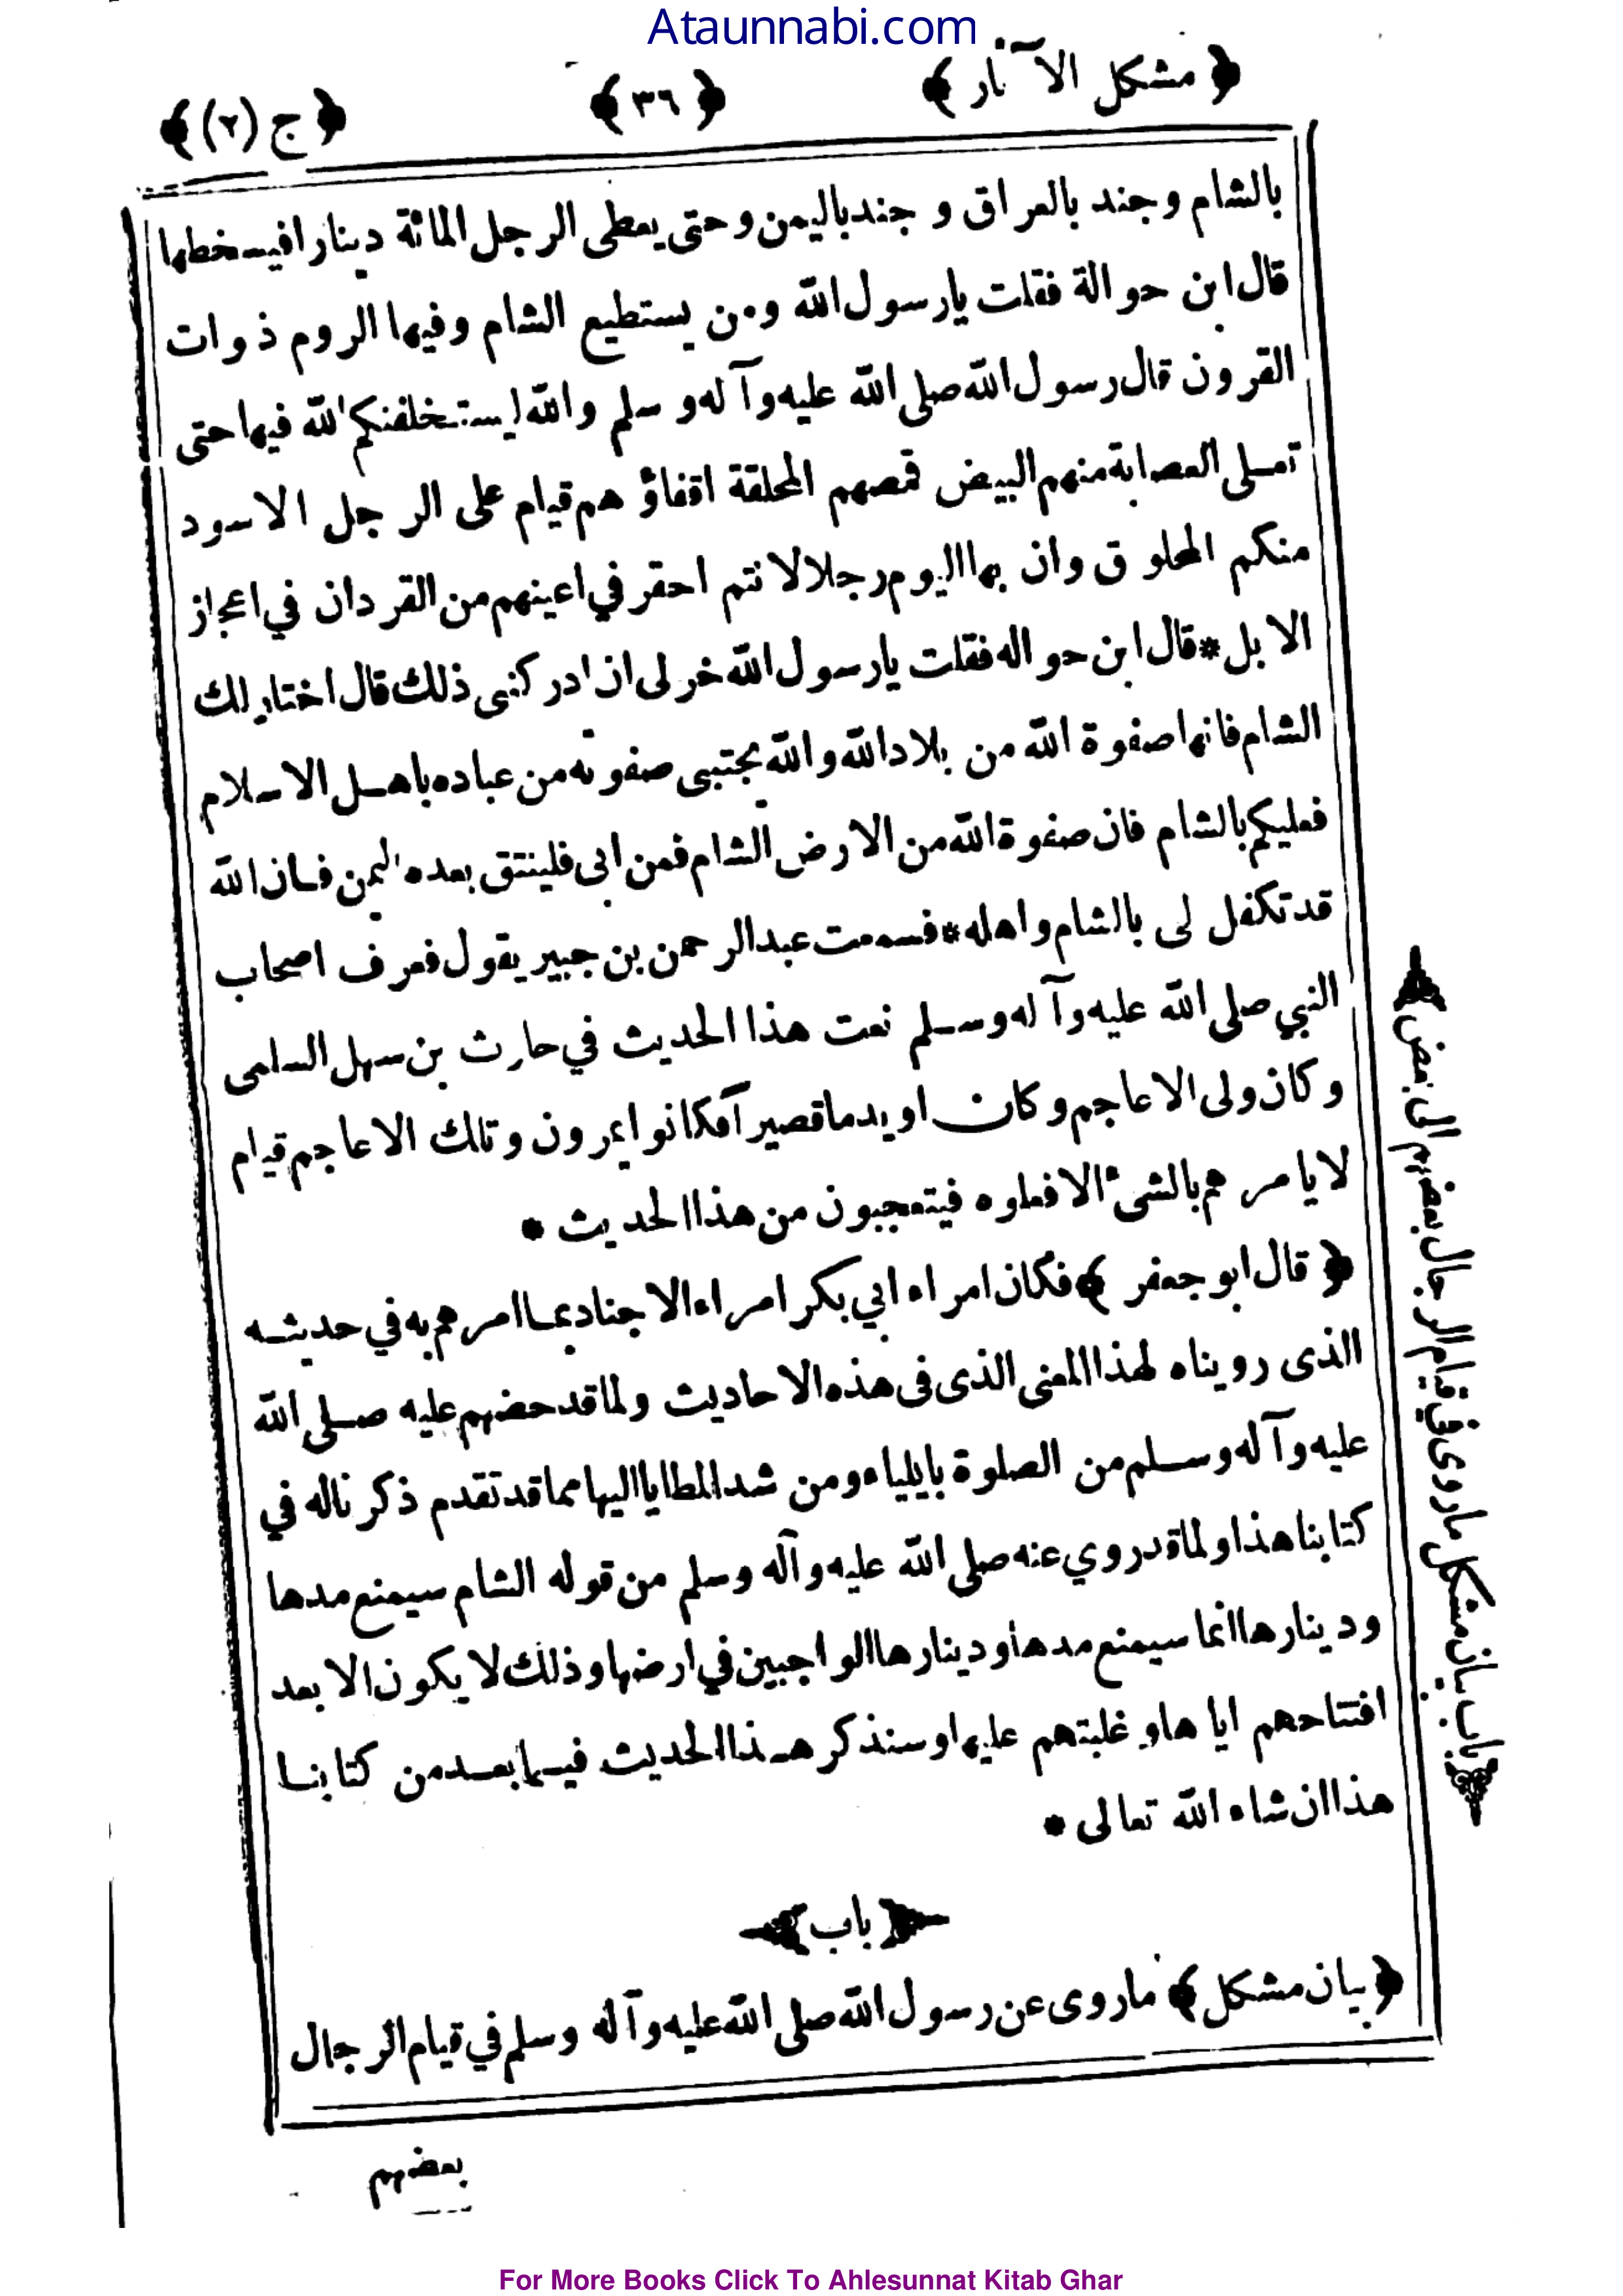 Ataunnabi.com
﴿ مشكل الآثار ﴾ ﴿ ٣٦ ﴾ ﴿ ج (٢) ﴾
بالشام وجند بالعراق و جند باليمن وحتى يعطى الرجل المائة دينار افيسخطها
قال ابن حوالة فقلت يا رسول الله ومن يستطيع الشام وفيها الروم ذوات
القرون قال رسول الله صلى الله عليه وآله وسلم والله ليستخلفنكم الله فيها حتى
تمسلى العصابة منهم البيض قمصهم المحلقة اقفاؤهم قيام على الرجل الاسود
منكم المحلوق وان بها اليوم رجلا لانتم احقر في اعينهم من القردان في اعجاز
الابل * قال ابن حواله فقلت يا رسول الله خر لى ان ادركنى ذلك قال اختار لك
الشام فانها صفوة الله من بلاد الله والله يجتبى صفوته من عباده باهل الاسلام
فعليكم بالشام فان صفوة الله من الارض الشام فمن ابى فلينتق بعده اليمن فان الله
قد تكفل لى بالشام واهله * فسمعت عبد الرحمن بن جبير يقول فعرف اصحاب
النبي صلى الله عليه وآله وسلم نعت هذا الحديث في حارث بن سهل السلمى
وكان ولى الاعاجم وكان اويدما قصيرآ فكانوا يمرون وتلك الاعاجم قيام
لا يامرهم بالشئ الا فعلوه فيتعجبون من هذا الحديث *
﴿ قال ابو جعفر ﴾ فكان امراء ابي بكر امراء الاجناد بما امرهم به في حديثه
الذى رويناه لهذا المعنى الذى فى هذه الاحاديث ولما قد حضهم عليه صلى الله
عليه وآله وسلم من الصلوة بايلياء ومن شد المطايا اليها مما قد تقدم ذكرناله في
كتابنا هذا ولما قد روي عنه صلى الله عليه وآله وسلم من قوله الشام سيمنع مدها
ودينارها انما سيمنع مدها ودينارها الواجبين في ارضها وذلك لا يكون الا بعد
افتتاحهم اياها و غلبتهم عليها وسنذكر هذا الحديث فيما بعد من كتابنا
هذا ان شاء الله تعالى *
﴿ باب ﴾
﴿ بيان مشكل ﴾ ما روى عن رسول الله صلى الله عليه وآله وسلم في قيام الرجال
بعضهم
﴿ باب بيان مشكل ما روى في قيام الرجال بعضهم الى بعض ﴾
For More Books Click To Ahlesunnat Kitab Ghar